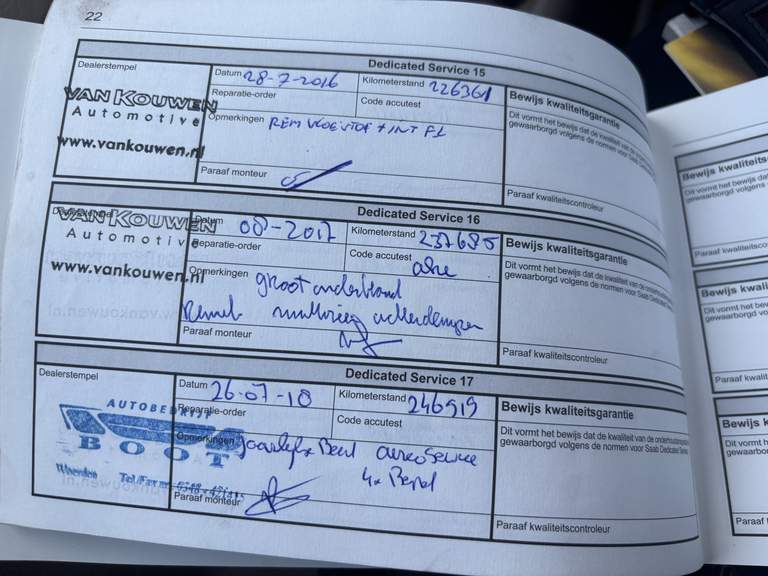 22
Dedicated Service 15
Dealerstempel
Datum 28-7-2016
Kilometerstand 226361
Bewijs kwaliteitsgarantie
Reparatie-order
Code accutest
Dit vormt het bewijs dat de kwaliteit van de
gewaarborgd volgens de normen voor Saab Dedicated
VAN KOUWEN
Automotive
www.vankouwen.nl
Opmerkingen REM VLOEISTOF + INT F1
Paraaf monteur
Paraaf kwaliteitscontroleur
Dedicated Service 16
VAN KOUWEN
Automotive
www.vankouwen.nl
Datum 08-2017
Kilometerstand 237685
Bewijs kwaliteitsgarantie
Reparatie-order
Code accutest
Dit vormt het bewijs dat de kwaliteit van de
gewaarborgd volgens de normen voor Saab Dedicated
Opmerkingen groot onderhoud
Paraaf monteur
Paraaf kwaliteitscontroleur
Dedicated Service 17
Dealerstempel
Datum 26-07-18
Kilometerstand 246919
Bewijs kwaliteitsgarantie
Reparatie-order
Code accutest
Dit vormt het bewijs dat de kwaliteit van de
gewaarborgd volgens de normen voor Saab Dedicated
AUTOBEDRIJF
BOOT
Opmerkingen
4x
Paraaf monteur
Paraaf kwaliteitscontroleur
Bewijs kwaliteits
Dit vormt het bewijs dat
gewaarborgd volgens de
Paraaf kwaliteitsco
Bewijs kwali
Dit vormt het bewijs
gewaarborgd volge
Paraaf kwalite
Bewijs kw
Dit vormt het b
gewaarborgd
Paraaf